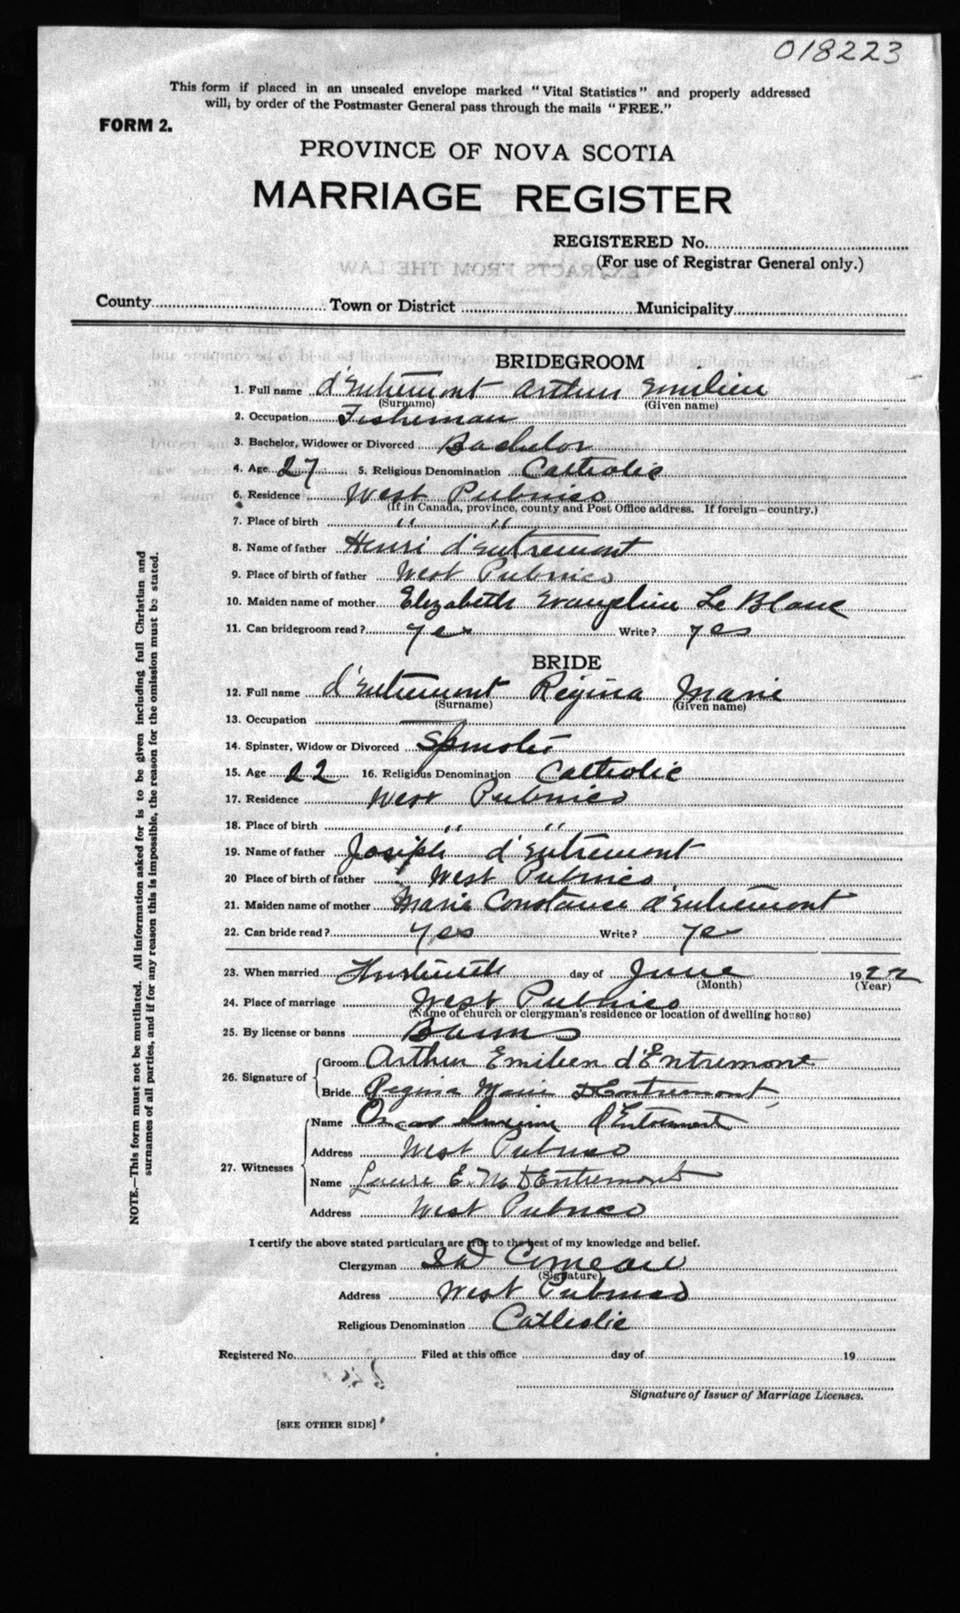 018223
This form if placed in an unsealed envelope marked "Vital Statistics" and properly addressed
will, by order of the Postmaster General pass through the mails "FREE."
FORM 2.
PROVINCE OF NOVA SCOTIA
MARRIAGE REGISTER
REGISTERED No.
(For use of Registrar General only.)
County Town or District Municipality
BRIDEGROOM
1. Full name d'Entremont Arthur Emilien
(Surname) (Given name)
2. Occupation Fisherman
3. Bachelor, Widower or Divorced Bachelor
4. Age 27 5. Religious Denomination Catholic
6. Residence West Pubnico
(If in Canada, province, county and Post Office address. If foreign—country.)
7. Place of birth " "
8. Name of father Henri d'Entremont
9. Place of birth of father West Pubnico
10. Maiden name of mother Elizabeth Evangeline Le Blanc
11. Can bridegroom read? yes Write? yes
BRIDE
12. Full name d'Entremont Regina Marie
(Surname) (Given name)
13. Occupation —
14. Spinster, Widow or Divorced Spinster
15. Age 22 16. Religious Denomination Catholic
17. Residence West Pubnico
18. Place of birth " "
19. Name of father Joseph d'Entremont
20 Place of birth of father West Pubnico
21. Maiden name of mother Marie Constance d'Entremont
22. Can bride read? yes Write? yes
23. When married day of June 1922
(Month) (Year)
24. Place of marriage West Pubnico
(Name of church or clergyman's residence or location of dwelling house)
25. By license or banns Banns
26. Signature of Groom Arthur Emilien d'Entremont
Bride Regina Marie D'Entremont
27. Witnesses Name d'Entremont
Address West Pubnico
Name E. M. D'Entremont
Address West Pubnico
I certify the above stated particulars are true to the best of my knowledge and belief.
Clergyman Comeau
(Signature)
Address West Pubnico
Religious Denomination Catholic
Registered No. Filed at this office day of 19
Signature of Issuer of Marriage Licenses.
[SEE OTHER SIDE]
NOTE.—This form must not be mutilated. All information asked for is to be given including full Christian and
surnames of all parties, and if for any reason this is impossible, the reason for the omission must be stated.